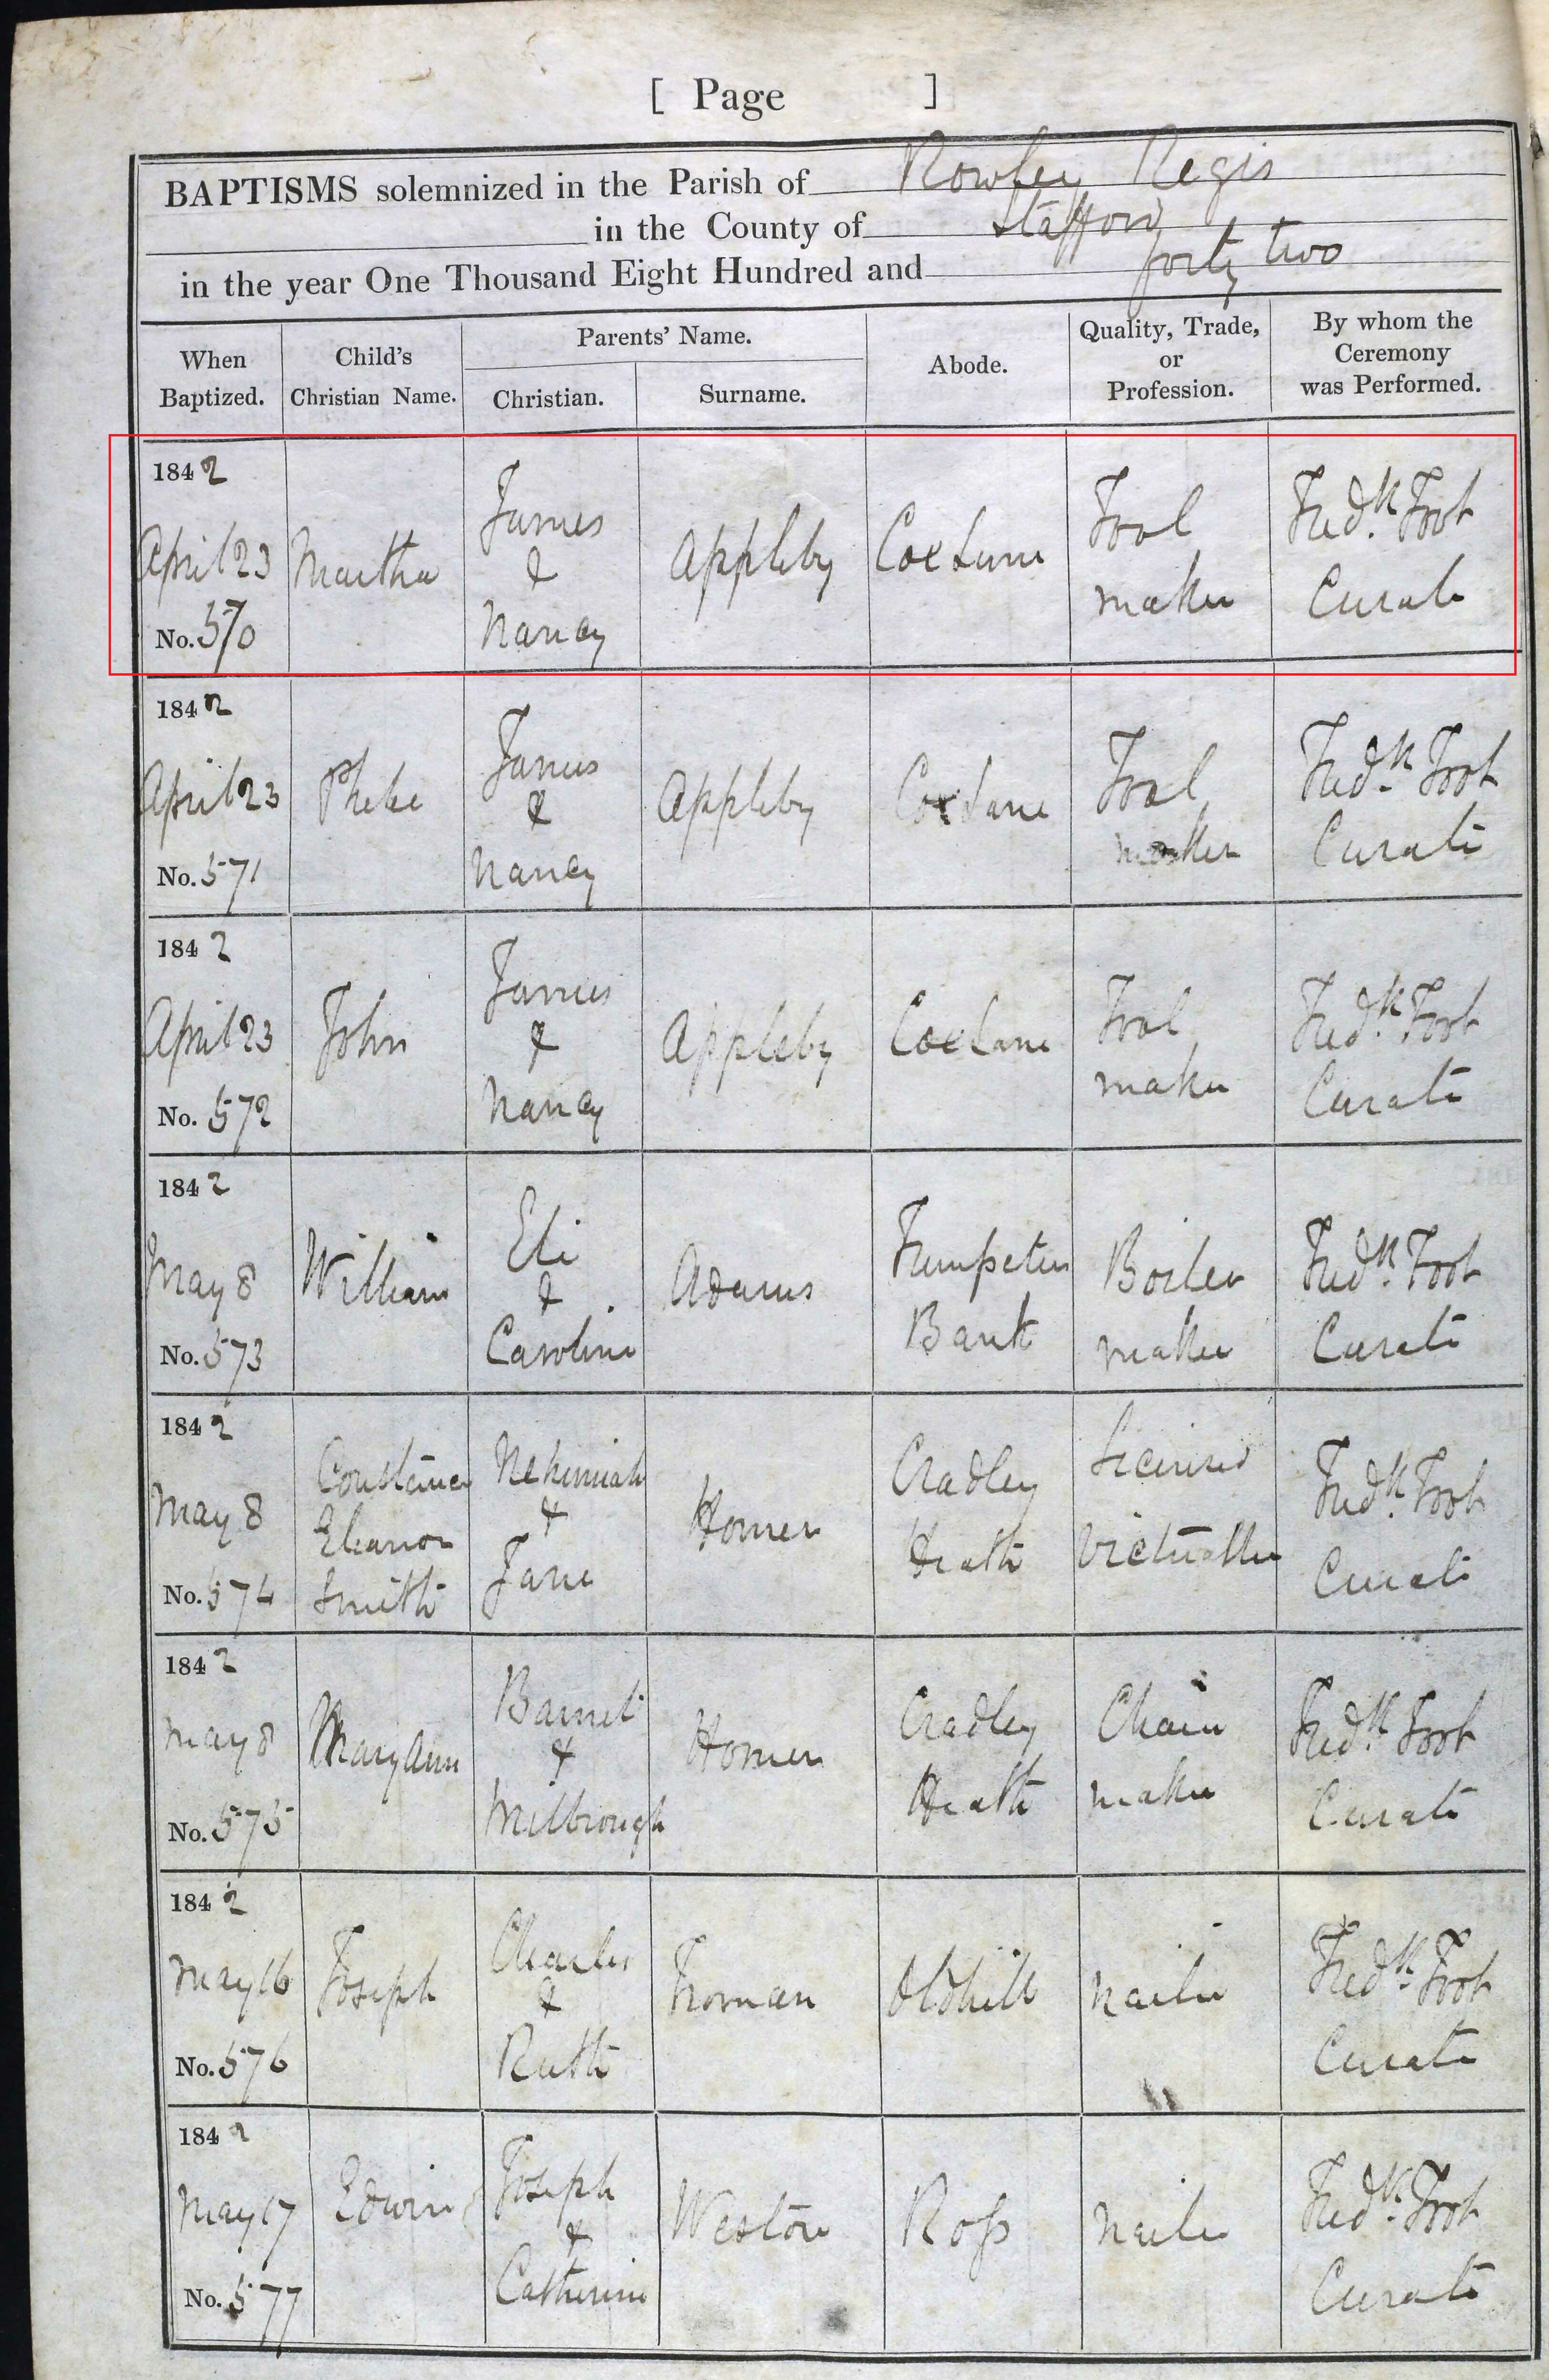 [ Page ]
BAPTISMS solemnized in the Parish of Rowley Regis
in the County of Stafford
in the year One Thousand Eight Hundred and forty two
When Baptized. Child's Christian Name. Parents' Name. Christian. Surname. Abode. Quality, Trade, or Profession. By whom the Ceremony was Performed.
1842
April 23
No. 570
Martha
James
&
Nancy
Appleby
Coxlane
Tool
maker
Fredk. Foot
Curate
1842
April 23
No. 571
Phebe
James
&
Nancy
Appleby
Coxlane
Tool
maker
Fredk. Foot
Curate
1842
April 23
No. 572
John
James
&
Nancy
Appleby
Coxlane
Tool
maker
Fredk. Foot
Curate
1842
May 8
No. 573
William
Eli
&
Caroline
Adams
Trumpeter
Bank
Boiler
maker
Fredk. Foot
Curate
1842
May 8
No. 574
Constance
Eleanor
Smith
Nehemiah
&
Jane
Homer
Cradley
Heath
Licensed
Victualler
Fredk. Foot
Curate
1842
May 8
No. 575
Mary Ann
Barnet
&
Milbrough
Homer
Cradley
Heath
Chain
maker
Fredk. Foot
Curate
1842
May 16
No. 576
Joseph
Charles
&
Ruth
Troman
Oldhill
Nailer
Fredk. Foot
Curate
1842
May 17
No. 577
Edwin
Joseph
&
Catherine
Weston
Ross
Nailer
Fredk. Foot
Curate